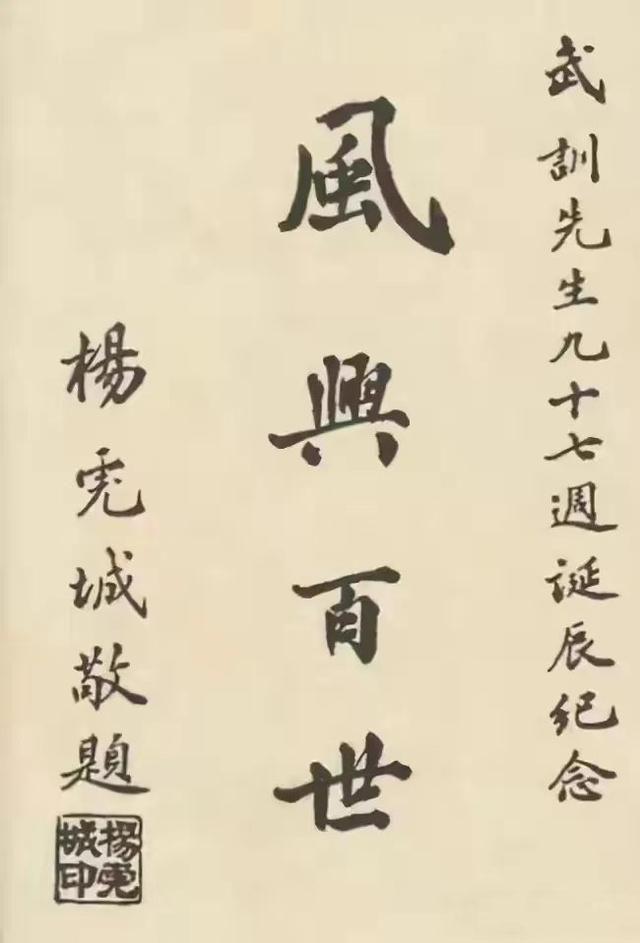 武訓先生九十七週誕辰纪念
風興百世
楊虎城敬題
楊虎
城印